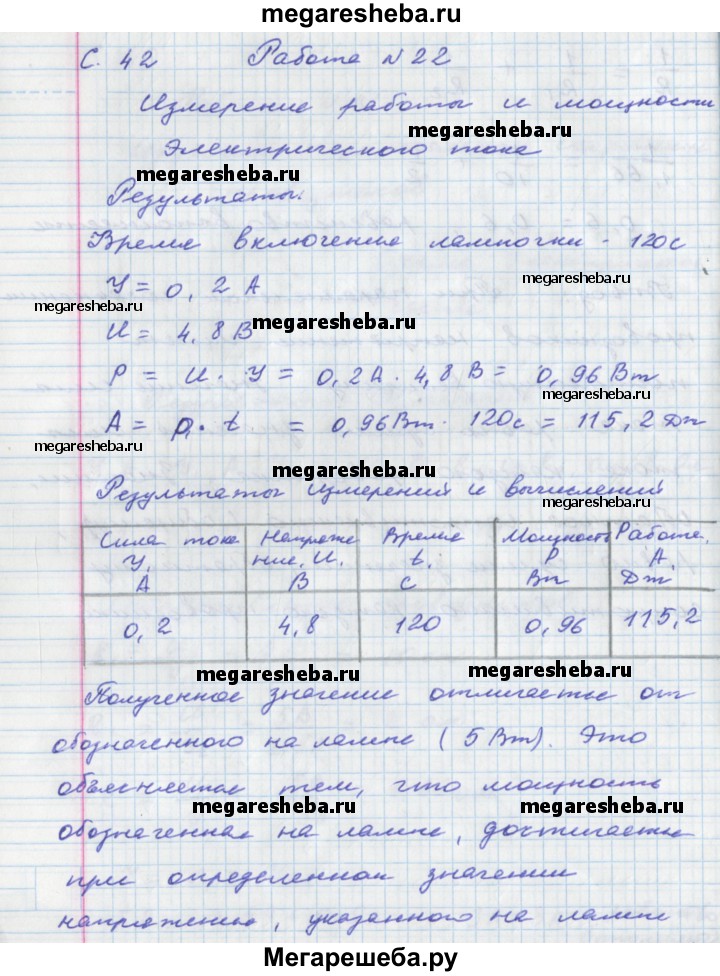 megaresheba.ru
С. 42 Работа №22
Измерение работы и мощности
megaresheba.ru
электрического тока
megaresheba.ru
Результаты:
Время включения лампочки - 120с
У = 0,2 А
megaresheba.ru
megaresheba.ru
И = 4,8 В
megaresheba.ru
Р = И · У = 0,2А · 4,8 В = 0,96 Вт
megaresheba.ru
А = р · t = 0,96Вт · 120с = 115,2 Дж
megaresheba.ru
megaresheba.ru
Результаты измерений и вычислений
megaresheba.ru
Сила тока У, А | Напряжение, И, В | Время t, с | Мощность Р Вт | Работа, А, Дж
0,2 | 4,8 | 120 | 0,96 | 115,2
megaresheba.ru
megaresheba.ru
Полученное значение отличается от
обозначенного на лампе (5 Вт). Это
объясняется тем, что мощность
megaresheba.ru
megaresheba.ru
обозначенная на лампе, достигается
при определенном значении
напряжения, указанного на лампе
Мегарешеба.ру